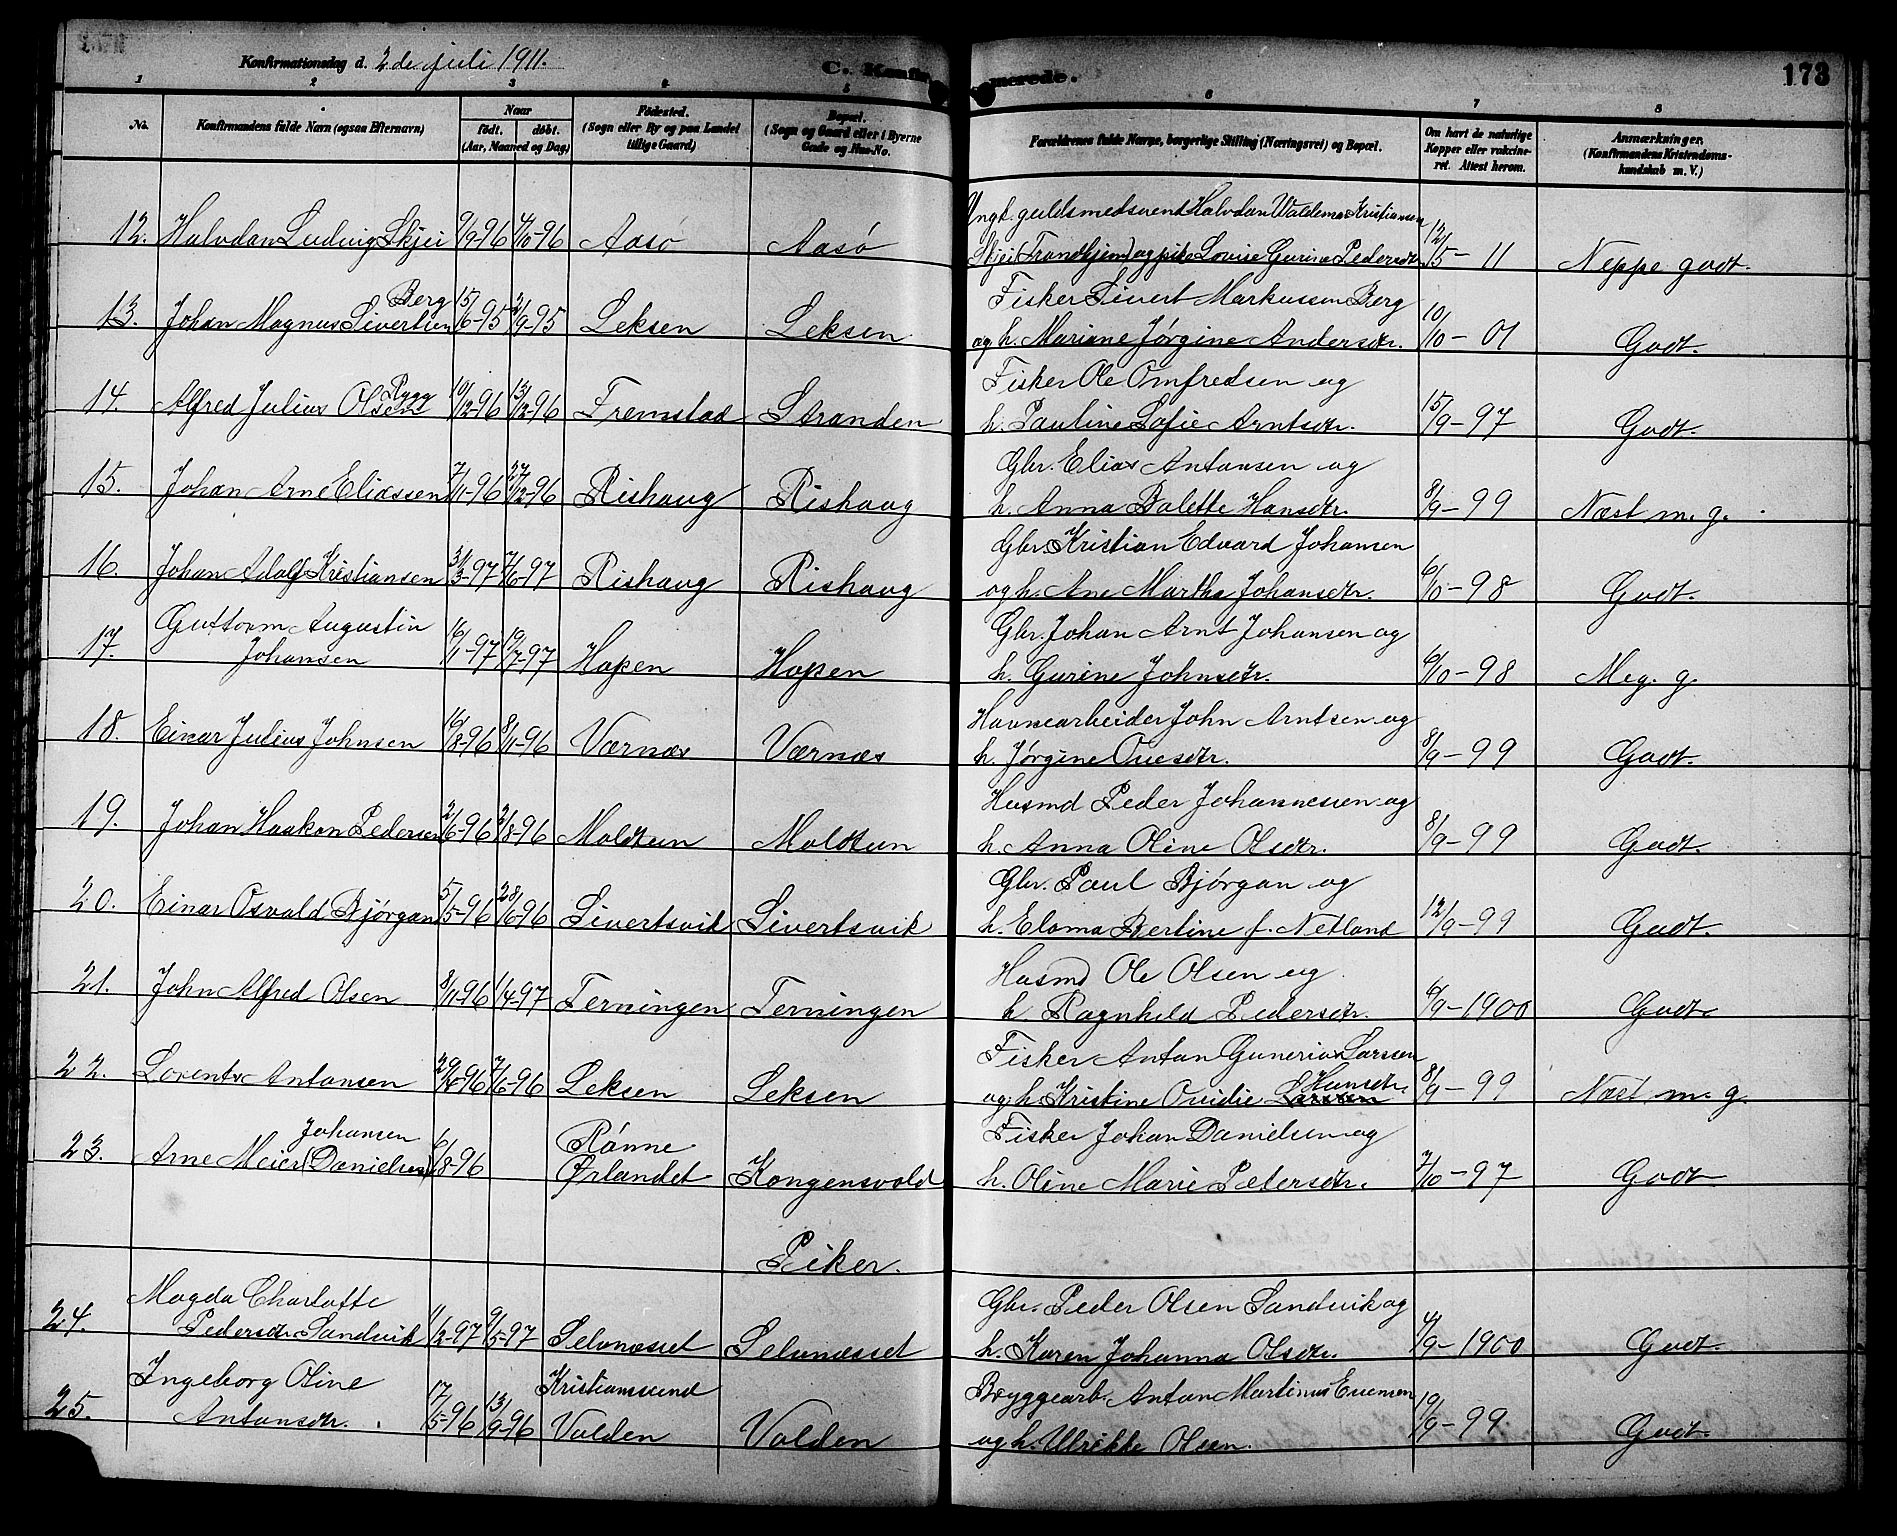 Konfirmationsdag d. 2 de juli 1911.
C. Konfirmerede.
173
1 2 3 4 5 6 7 8
No.
Konfirmandens fulde Navn (ogsaa Efternavn)
Naar
født. døbt.
(Aar, Maaned og Dag)
Fødested.
(Sogn eller By og paa Landet
tillige Gaard)
Bopæl.
(Sogn og Gaard eller i Byerne
Gade og Hus-No.
Forældrenes fulde Navne, borgerlige Stilling (Næringsvei) og Bopæl.
Om havt de naturlige
Kopper eller vakcine-
ret. Attest herom.
Anmærkninger.
(Konfirmandens Kristendoms-
kundskab m. V.)
Ungk. guldsmedsvend Halvdan Waldemar Kristiansen
12. Halvdan Ludvig Skjei 9/9-96 4/10-96 Aasø Aasø Skjei (Trondhjem) og pike Lovise Gurine Pedersdtr. 12/5-11 Neppe godt.
Berg Fisker Sivert Markussen Berg
13. Johan Magnus Sivertsen 15/6-95 2/9-95 Leksen Leksen og h. Mariane Jørgine Andersdtr. 10/10-01 Godt.
Rygg Fisker Ole Omfredsen og
14. Alfred Julius Olsen 10/12-96 13/12-96 Fremstad Stranden h. Pauline Sofie Arntsdtr. 15/9-97 Godt.
Gbr. Elias Antonsen og
15. Johan Arne Eliassen 7/11-96 27/12-96 Rishaug Rishaug h. Anna Dalette Hansdtr. 8/9-99 Næst m. g.
Gbr. Kristian Edvard Johansen
16. Johan Adolf Kristiansen 31/3-97 7/6-97 Rishaug Rishaug og h. Ane Martha Johansdtr. 6/10-98 Godt.
Guttorm Augustin Gbr. Johan Arnt Johansen og
17. Johansen 16/1-97 19/7-97 Hopen Hopen h. Gurine Johnsdtr. 6/10-98 Meg. g.
Havnearbeider John Arntsen og
18. Einar Julius Johnsen 16/8-96 8/11-96 Værnæs Værnæs h. Jørgine Ovesdtr. 8/9-99 Godt.
Husmd Peder Johannessen og
19. Johan Haakon Pedersen 2/6-96 2/8-96 Moldtun Moldtun h. Anna Oline Olsdtr. 8/9-99 Godt.
Gbr. Paul Bjørgan og
20. Einar Osvald Bjørgan 5/5-96 28/6-96 Sivertsvik Sivertsvik h. Eloma Bertine f. Netland 12/9-99 Godt.
Husmd Ole Olsen og
21. John Alfred Olsen 8/11-96 1/4-97 Terningen Terningen h. Ragnhild Pedersdtr. 6/9-1900 Godt
Fisker Anton Gunerius Larsen
22. Lorents Antonsen 29/4-96 7/6-96 Leksen Leksen og h. Kristine Ovidie Larsen Hansdtr. 8/9-99 Næst m. g.
Johansen Rønne Fisker Johan Danielsen og
23. Arne Meier (Danielsen) 6/8-96 Ørlandet Kongensvold h. Oline Marie Petersdtr. 7/10-97 Godt
Piker.
Magda Charlotte Gbr. Peder Olsen Sandvik og
24. Pedersdtr. Sandvik 11/2-97 9/5-97 Selvnæsset Selvnæsset h. Karen Johanna Olsdtr. 4/9-1900 Godt.
Ingeborg Oline Kristiansund Bryggearb. Anton Martinus Evensen
25. Antonsdtr. 17/5-96 13/9-96 Valden Valden og h. Ulrikke Olsen. 19/9-99 Godt.